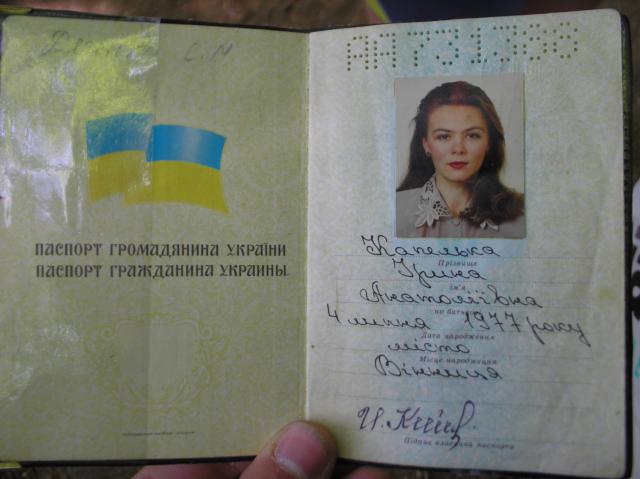 ПАСПОРТ ГРОМАДЯНИНА УКРАЇНИ
ПАСПОРТ ГРАЖДАНИНА УКРАИНЫ
Капелька
Прізвище
Ірина
ім'я
Анатоліївна
по батькові
4 липня 1977 року
Дата народження
місто
Місце народження
Вінниця
Підпис власника паспорта